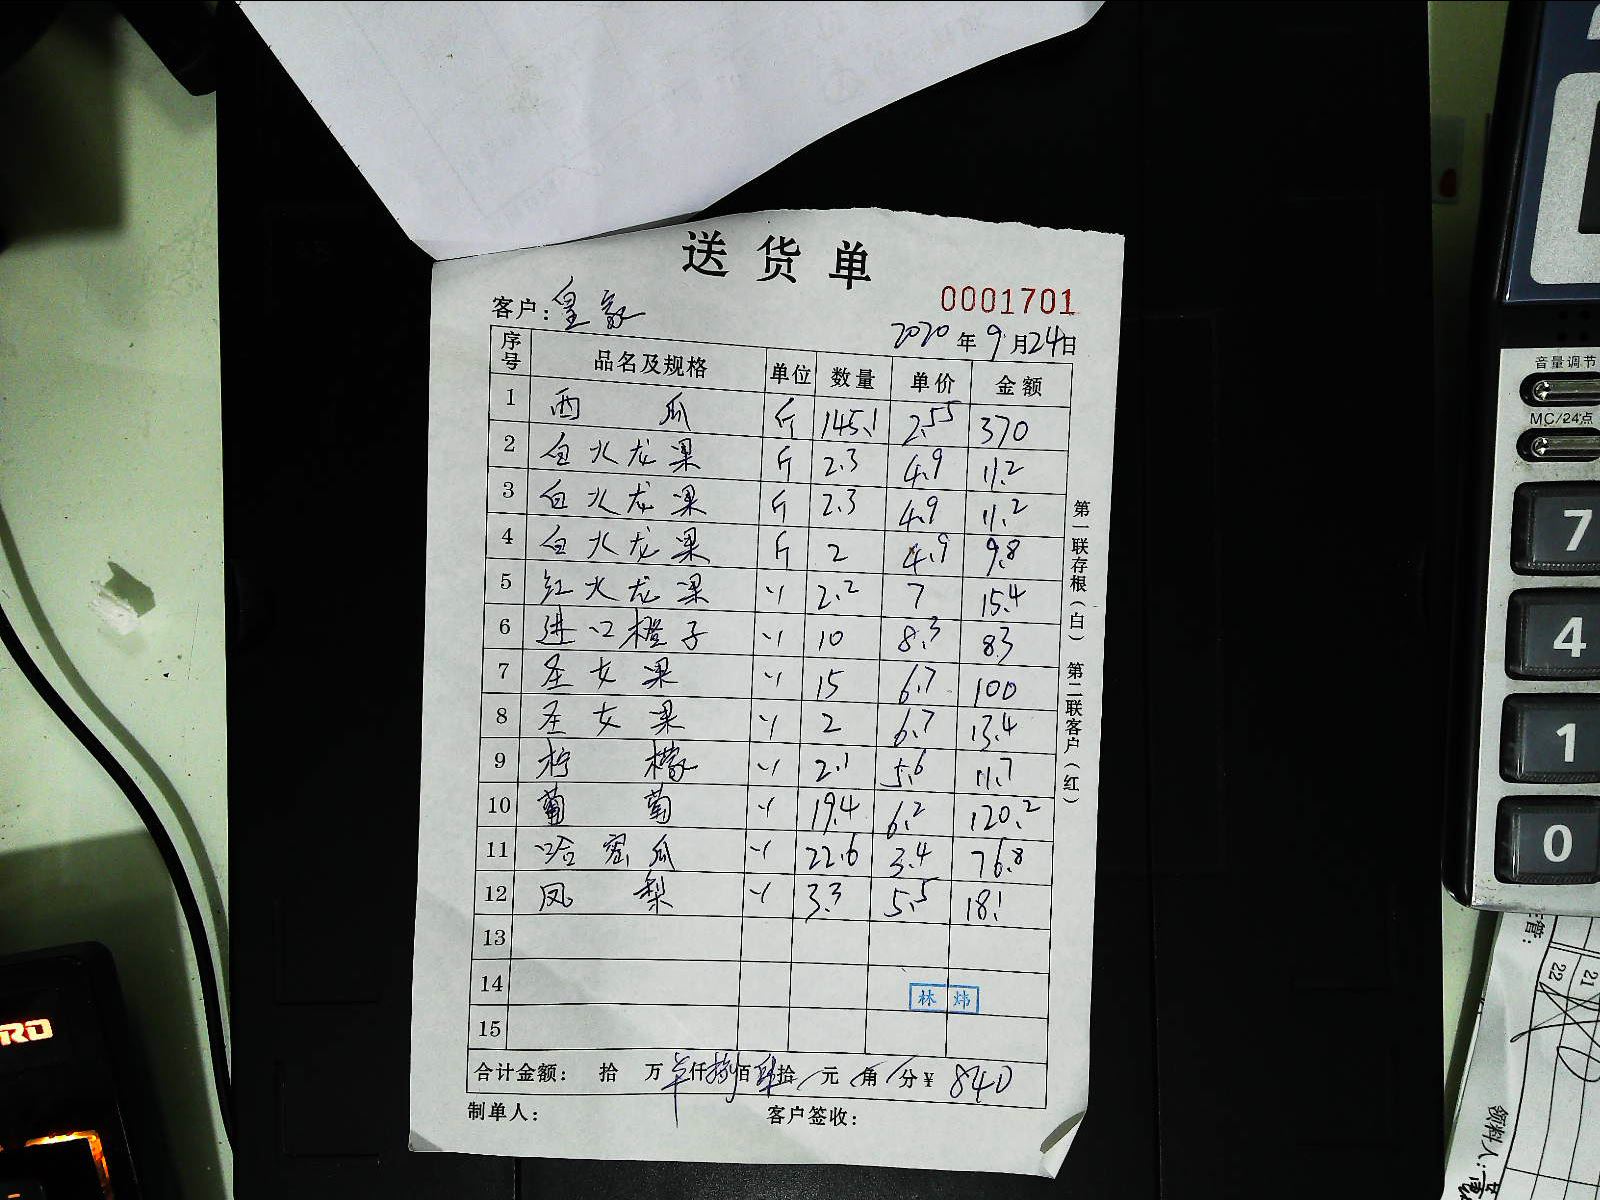 送货单
0001701
客户：皇家
2020年9月24日
序号 品名及规格 单位 数量 单价 金额
1 西瓜 斤 145.1 2.55 370
2 白火龙果 斤 2.3 4.9 11.2
3 白火龙果 斤 2.3 4.9 11.2
4 白火龙果 斤 2 4.9 9.8
5 红火龙果 〃 2.2 7 15.4
6 进口橙子 〃 10 8.3 83
7 圣女果 〃 15 6.7 100
8 圣女果 〃 2 6.7 13.4
9 柠檬 〃 2.1 5.6 11.7
10 葡萄 〃 19.4 6.2 120.2
11 哈密瓜 〃 22.6 3.4 76.8
12 凤梨 〃 3.3 5.5 18.1
13
14
林炜
15
合计金额： 拾 万 仟捌佰肆拾 元 角 分 ¥ 840
制单人： 客户签收：
第一联存根（白） 第二联客户（红）
音量调节
MC/24点
7
4
1
0
管：
21
22
领料人：
RD